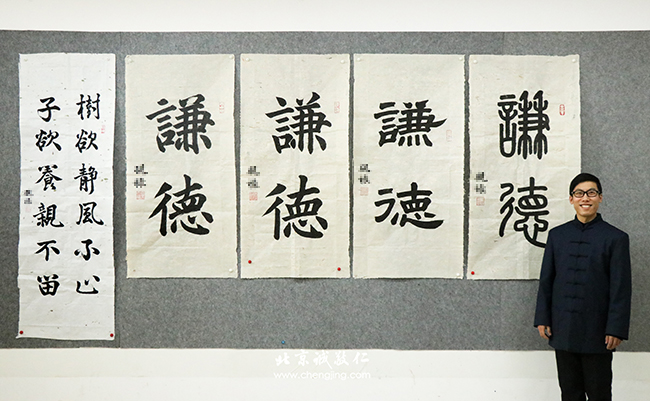 樹欲靜風不止
子欲養親不留
謙德
謙德
謙德
謙德
北京誠敬仁
www.chengjing.com